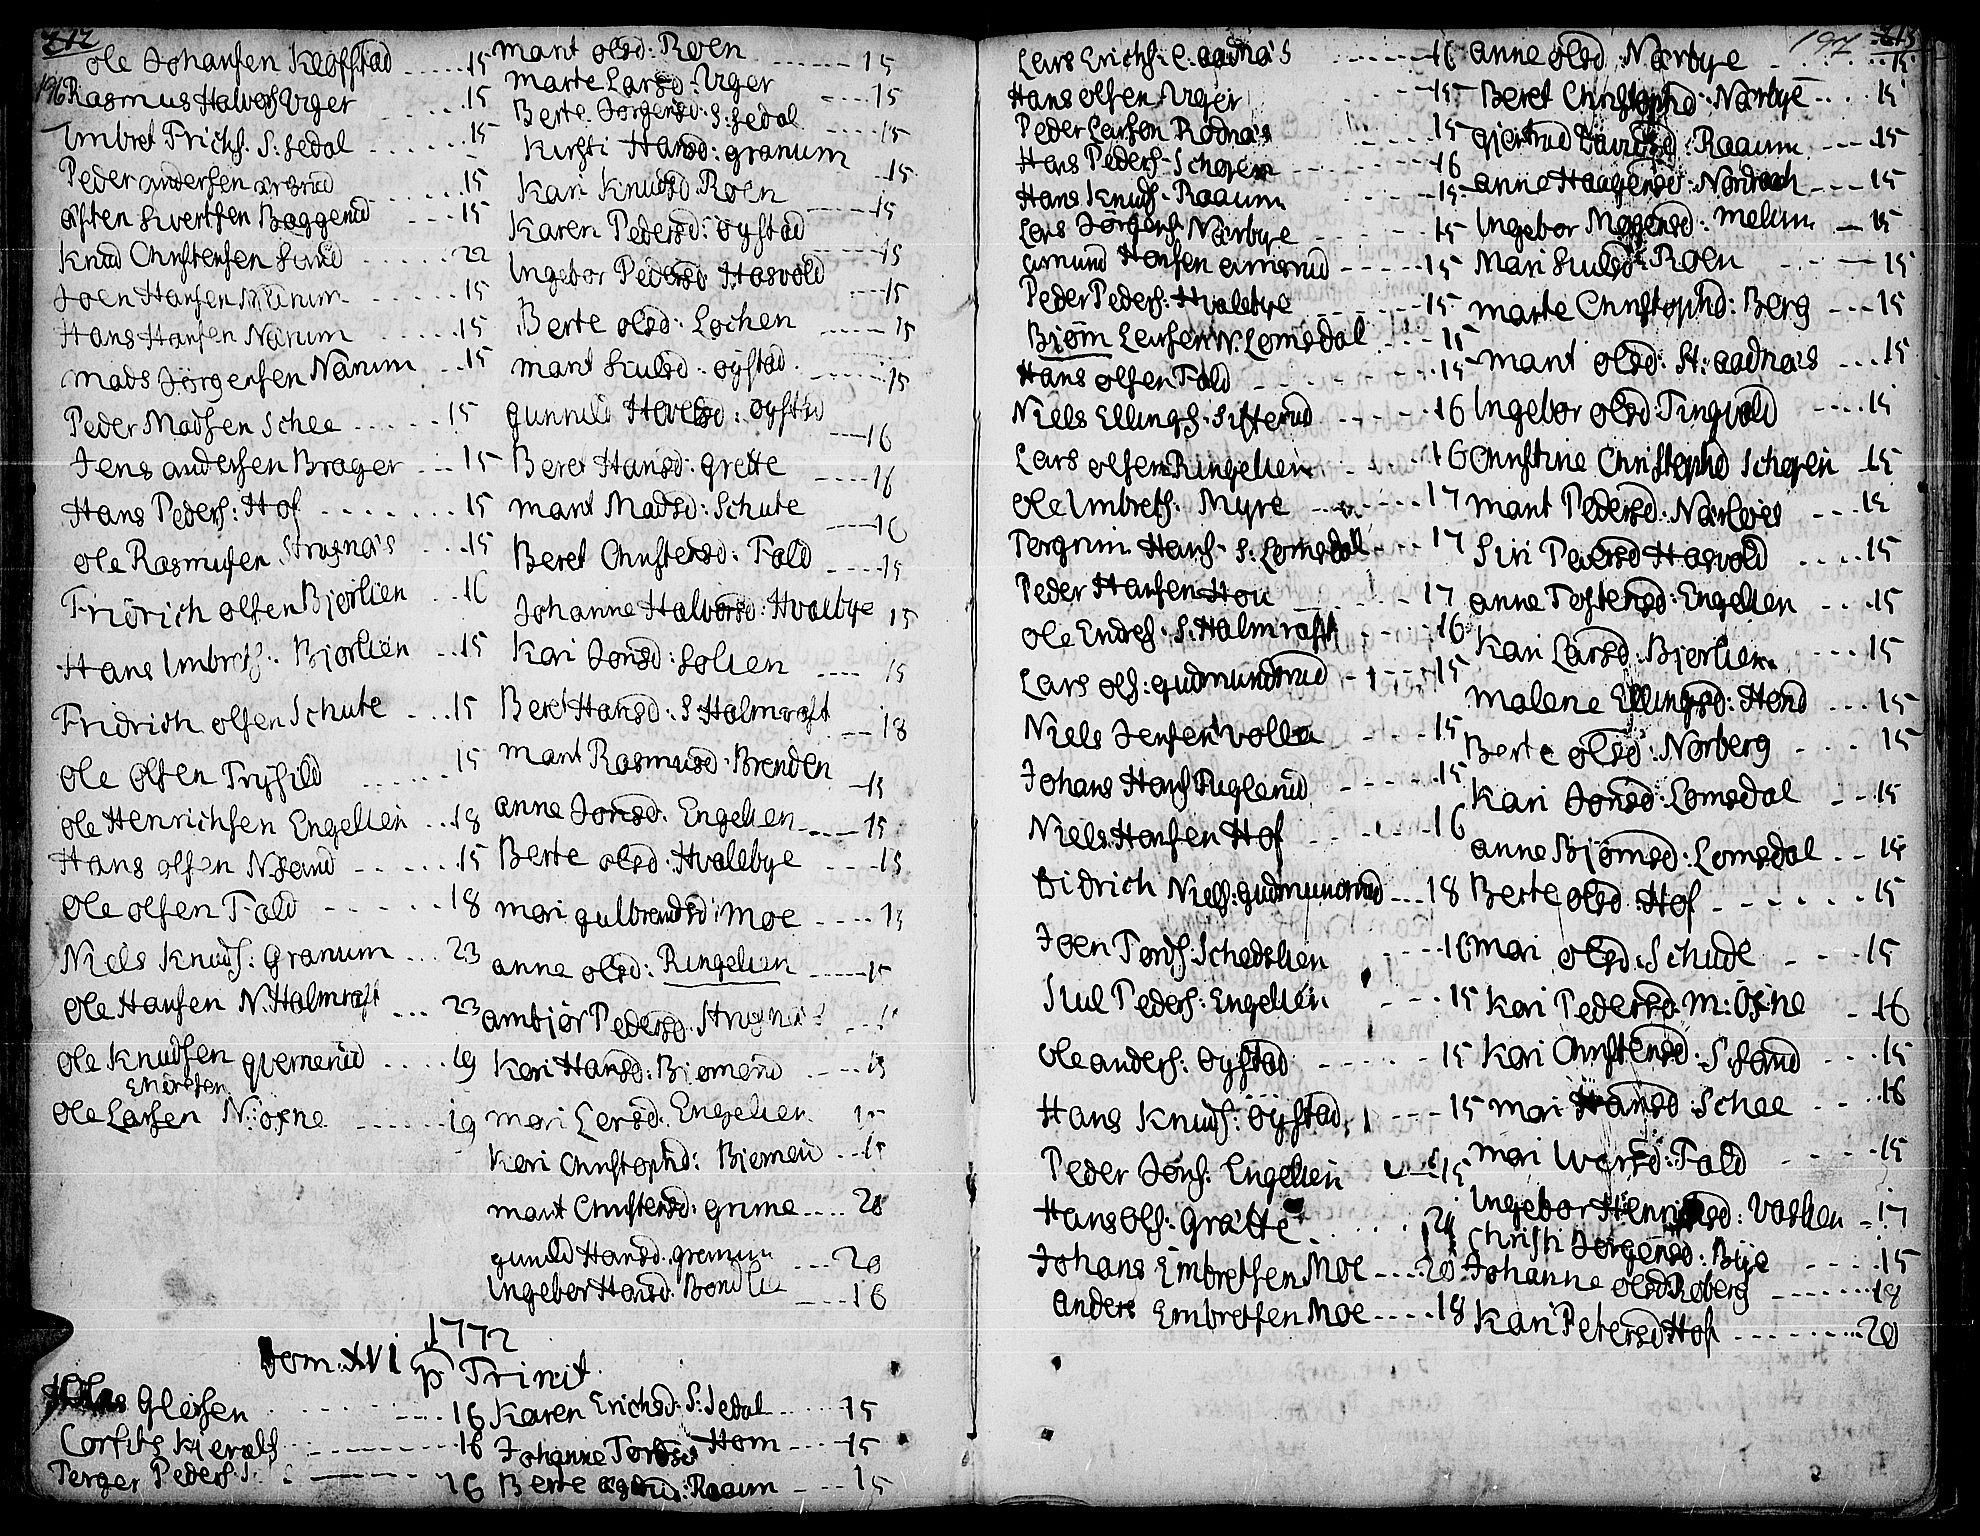 212
196
Ole Johansen Kløfstad ..... 15
Rasmus Halvors Uger ... 15
Imbret Frichs. S: Sedal ...... 15
Peder andersen ..... 15
østen Sivertsen Baggerud .... 15
Knud Christensen Lund ..... 22
Joen Hansen Narum ...... 15
Hans Hansen Narum ..... 15
Mads Jörgensen Narum ... 15
Peder Madsen Schee ...... 15
Jens andersen Brager ... 15
Hans Peders: Hof ........ 15
Ole Rasmusen Strugnæs .... 15
Fridrich olsen Bjorlien ... 16
Hans Imbrets: Bjorlien ... 15
Fridrich olsen Schute .... 15
Ole Olsen Frysild ...... 15
Ole Henrichsen Engelien ... 18
Hans olsen N Sand ...... 15
Ole olsen Fald ...... 18
Niels Knuds: Granum .... 23
Ole Hansen N. Halmraft ... 23
Ole Knudsen qvernerud ..... 19
Endresen
Ole Larsen N: ofne ...... 19
Marit olsd: Roen ...... 15
Marte Larsd: Uger .... 15
Berte Jörgensd: S: Sedal .... 15
Kirsti Hansd: granum 15
Kari Knudsd: Roen ..... 15
Karen Pedersd: øystad .... 15
Ingebor Pedersd Hasvold ... 15
Berte olsd: Lochen ..... 15
marit Sulsd: øystad ..... 15
gunnild Hevelsd: øystad ... 16
Beret Hansd: grette .... 16
marit Madsd: Schute .... 16
Beret Christensd: Fald .... 15
Johanne Halvorsd: Hvalbye 15
Kari Jonsd: Solien ... 15
Beret Hansd: S Halmraft ... 18
marit Rasmusd: Brenden .. 15
anne Jonsd: Engelien .... 15
Berte olsd: Hvalebye .... 15
mari gulbrandsd: moe .... 15
anne olsd: Ringelien .... 15
ambjør Pedersd: Strugnæs ... 15
Kari Hansd: Biørnerud .... 15
mari Larsd: Engelien 15
Kari Christophd: Biørnerud ... 15
marit Christensd: grime .... 20
gunild Hansd: granum ... 20
Ingebor Hansd: Bondlie .... 16
1772
Dom: XVI p Trinit.
Glersen .......... 16
Corfits Kierulf ......... 16
Perger Peders. S. ........ 16
Karen Erichsd: S: Sedal ..... 15
Johanne Tordsd Hom .... 15
Berte : Raaum .... 15
197
213
Lars Erichs: aadnæs ...... 16
Hans olsen Uger .... 15
Peder Larsen Rodnæs ... 15
Hans Peders: Schøyen ...... 16
Hans Knuds: Raaum .... 15
Lars Jörgens: Narbye ...... 15
amund Hansen amerud ..... 15
Peder Peders: Hvalebye ...... 15
Bjørn Larsen N. Lomsdal .... 15
Hans olsen Fald ....... 15
Niels Ellings: Sifterud ..... 16
Lars olsen Ringelien .... 16
Ole Imbrets: Myre ...... 17
Pergrim Hans: S: Lomsdal .... 17
Peder Hansen Hou ...... 17
Ole Endres: S: Halmraft .... 16
Lars ols: gudmundrud .... 15
Niels Jensen Volla .... 15
Johans Hans Puglerud ..... 15
Niels Hansen Hof ...... 16
Didrich Niels: gudmundrud ... 18
Joen Tords: Schedslien .... 16
Siul Peders: Engelien .... 15
Ole anders: øystad ...... 15
Hans Knuds: øystad .... 15
Peder Jöns: Engelien .... 15
Hans Ols: Grätte ..... 24
Johans Embretsen Moe .... 20
Anders Embretsen Moe .... 18
anne olsd: Narbye ..... 15
Beret Christophd: Narbye .... 15
giertrud Davidsd: Raaum .... 15
anne Haagensd: Nordraak .... 15
Ingebor Mogensd: melum ... 15
Mari Siulsd: Roen .... 15
marte Christophd: Berg ... 15
marit olsd: St: aadnæs ... 15
Ingebor olsd: Tingvold .... 15
Christine Christophd Schøyen .. 15
marit Pedersd: Narlöes ... 15
Siri Pedersd Hasvold .... 15
anne Tostensd: Engelien .... 15
Kari Larsd: Bjorlien .... 15
Malene Ellingsd: Hend ... 15
Berte olsd: Norberg .... 15
Kari Jonsd: Lomsdal .. 15
anne Bjørnsd: Lomsdal ... 15
Berte olsd: Hof ....... 15
mari olsd: Schude ..... 15
Kari Pedersd: M: öfne . 16
Kari Christensd: S: Sand ... 15
mari Hansd: Schee .... 16
mari Iversd: Fald ..... 15
Ingebor Henrichsd: Vaslien .. 17
Christi Jorgensd: Bye .... 15
Johanne olsd Røberg ...... 18
Kari Petersd Hof ........ 20